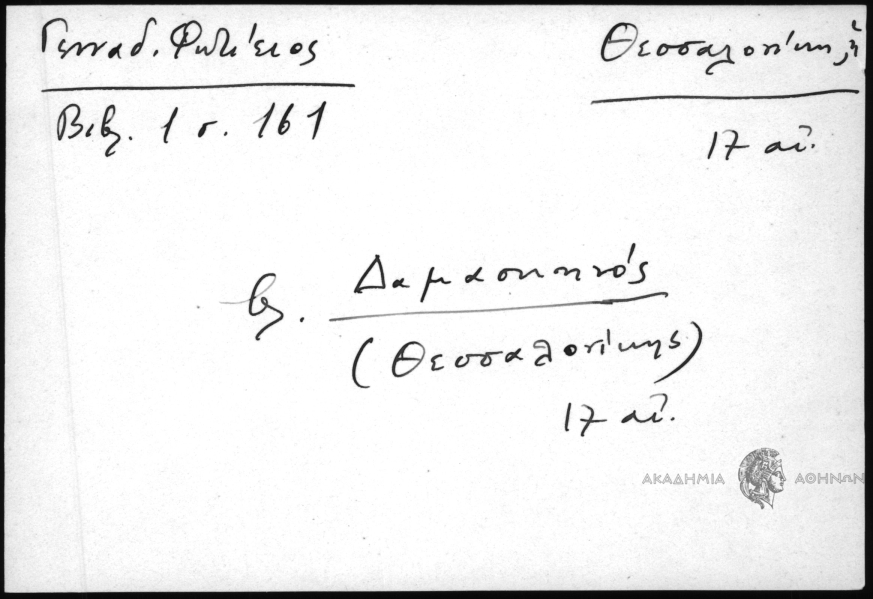 Γενναδ. Φωτίειος
Θεσσαλονίκη, ἡ
Βιβλ. 1 σ. 161
17 αἰ.
βλ. Δαμασκηνός
(Θεσσαλονίκης)
17 αἰ.
ΑΚΑΔΗΜΙΑ ΑΘΗΝΩΝ